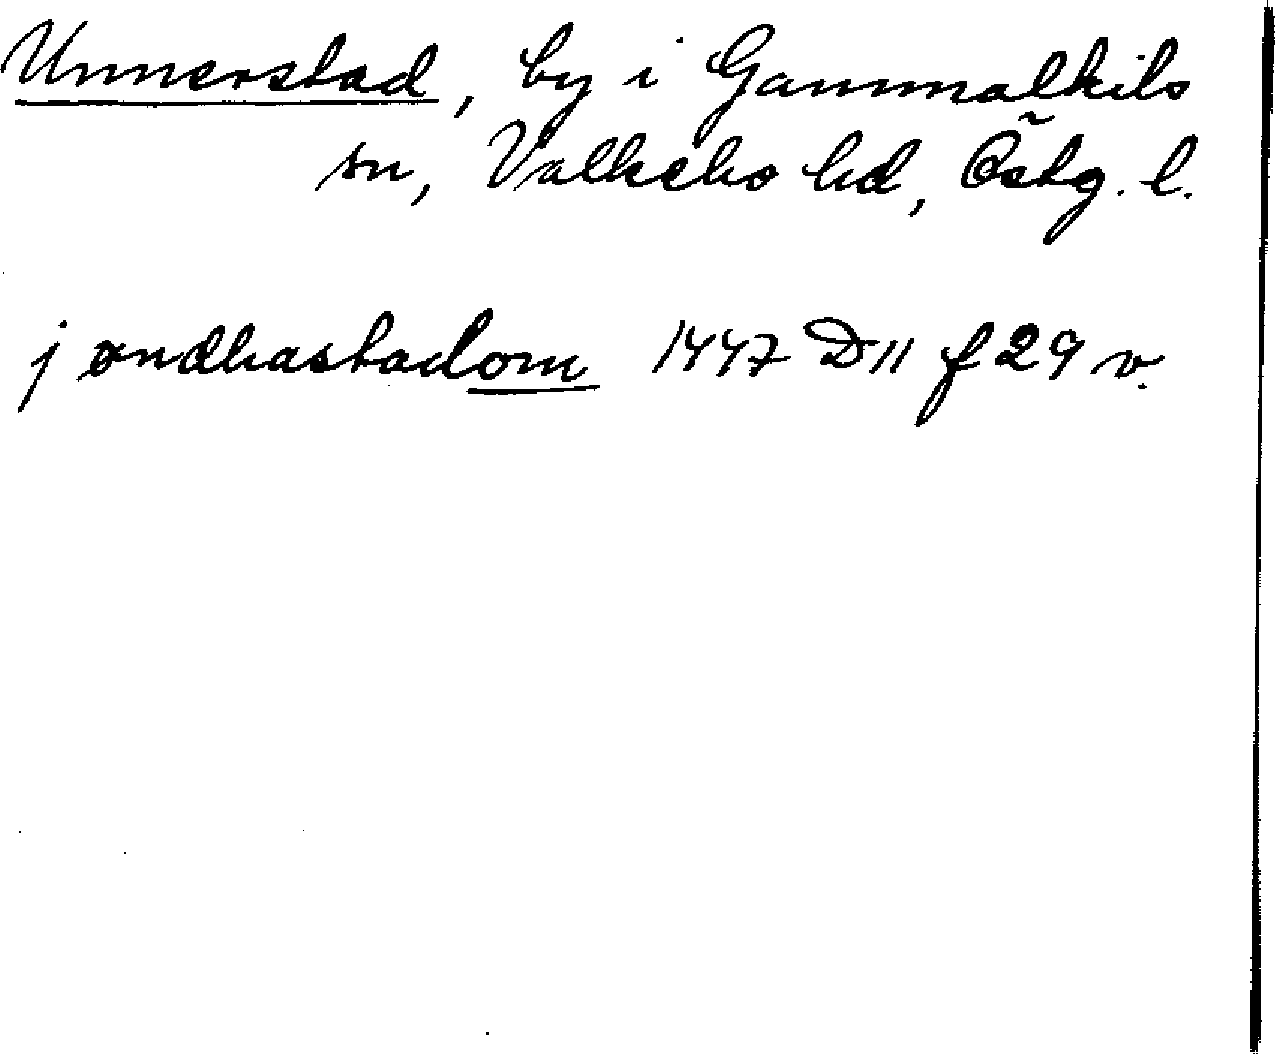 Unnerstad, by i Gammalkils
sn, Valkebo hd, Östg. l.
j ondhastadom 1447 D11 f 29 v.